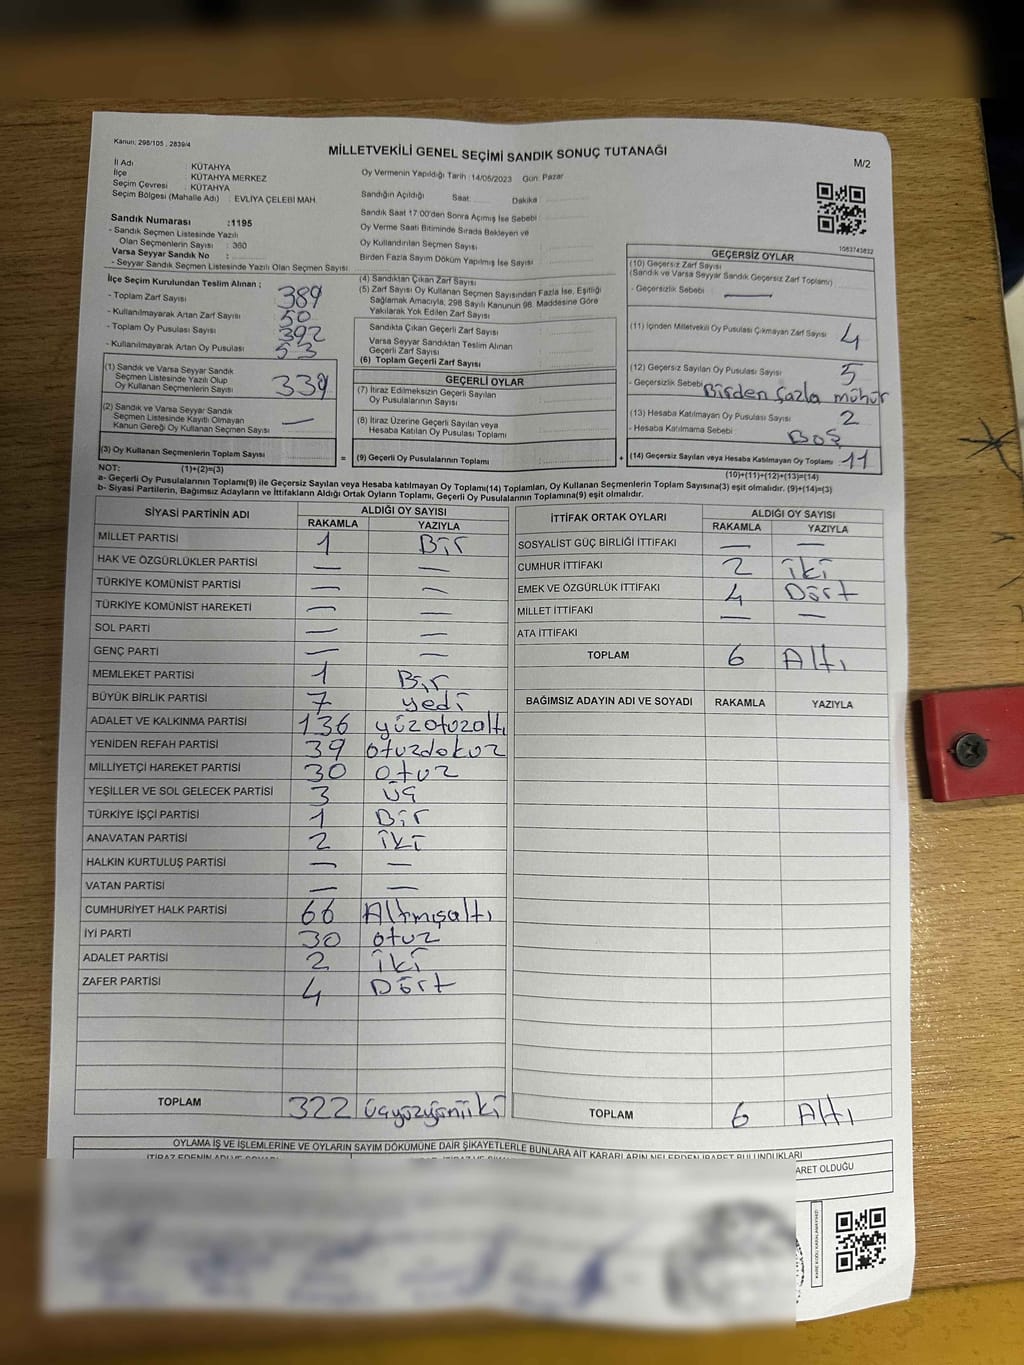 Kanun: 298/105 , 2839/4
MİLLETVEKİLİ GENEL SEÇİMİ SANDIK SONUÇ TUTANAĞI
M/2
İl Adı : KÜTAHYA
İlçe : KÜTAHYA MERKEZ
Seçim Çevresi : KÜTAHYA
Seçim Bölgesi (Mahalle Adı) : EVLİYA ÇELEBİ MAH.
Oy Vermenin Yapıldığı Tarih :14/05/2023 Gün: Pazar
Sandığın Açıldığı Saat: Dakika
Sandık Saat 17:00'den Sonra Açımış İse Sebebi :
Oy Verme Saati Bitiminde Sırada Bekleyen ve
Oy Kullandırılan Seçmen Sayısı
Birden Fazla Sayım Döküm Yapılmış İse Sayısı
Sandık Numarası :1195
- Sandık Seçmen Listesinde Yazılı
Olan Seçmenlerin Sayısı : 360
Varsa Seyyar Sandık No :
- Seyyar Sandık Seçmen Listesinde Yazılı Olan Seçmen Sayısı
1083743832
İlçe Seçim Kurulundan Teslim Alınan ;
- Toplam Zarf Sayısı 389
- Kullanılmayarak Artan Zarf Sayısı 50
- Toplam Oy Pusulası Sayısı 392
- Kullanılmayarak Artan Oy Pusulası 53
(1) Sandık ve Varsa Seyyar Sandık
Seçmen Listesinde Yazılı Olup
Oy Kullanan Seçmenlerin Sayısı 339
(2) Sandık ve Varsa Seyyar Sandık
Seçmen Listesinde Kayıtlı Olmayan
Kanun Gereği Oy Kullanan Seçmen Sayısı —
(3) Oy Kullanan Seçmenlerin Toplam Sayısı
(4) Sandıktan Çıkan Zarf Sayısı
(5) Zarf Sayısı Oy Kullanan Seçmen Sayısından Fazla İse, Eşitliği
Sağlamak Amacıyla, 298 Sayılı Kanunun 98. Maddesine Göre
Yakılarak Yok Edilen Zarf Sayısı
Sandıkta Çıkan Geçerli Zarf Sayısı
Varsa Seyyar Sandıktan Teslim Alınan
Geçerli Zarf Sayısı
(6) Toplam Geçerli Zarf Sayısı
GEÇERLİ OYLAR
(7) İtiraz Edilmeksizin Geçerli Sayılan
Oy Pusulalarının Sayısı
(8) İtiraz Üzerine Geçerli Sayılan veya
Hesaba Katılan Oy Pusulası Toplamı
= (9) Geçerli Oy Pusulalarının Toplamı : +
GEÇERSİZ OYLAR
(10) Geçersiz Zarf Sayısı
(Sandık ve Varsa Seyyar Sandık Geçersiz Zarf Toplamı)
- Geçersizlik Sebebi —
(11) İçinden Milletvekili Oy Pusulası Çıkmayan Zarf Sayısı 4
(12) Geçersiz Sayılan Oy Pusulası Sayısı 5
- Geçersizlik Sebebi Birden fazla mühür
(13) Hesaba Katılmayan Oy Pusulası Sayısı 2
- Hesaba Katılmama Sebebi Boş
(14) Geçersiz Sayılan veya Hesaba Katılmayan Oy Toplamı 11
NOT: (1)+(2)=(3)
(10)+(11)+(12)+(13)=(14)
a- Geçerli Oy Pusulalarının Toplamı(9) ile Geçersiz Sayılan veya Hesaba Katılmayan Oy Toplamı(14) Toplamları, Oy Kullanan Seçmenlerin Toplam Sayısına(3) eşit olmalıdır. (9)+(14)=(3)
b- Siyasi Partilerin, Bağımsız Adayların ve İttifakların Aldığı Ortak Oyların Toplamı, Geçerli Oy Pusulalarının Toplamına(9) eşit olmalıdır.
SİYASİ PARTİNİN ADI ALDIĞI OY SAYISI
RAKAMLA YAZIYLA
MİLLET PARTİSİ 1 Bir
HAK VE ÖZGÜRLÜKLER PARTİSİ — —
TÜRKİYE KOMÜNİST PARTİSİ — —
TÜRKİYE KOMÜNİST HAREKETİ — —
SOL PARTİ — —
GENÇ PARTİ — —
MEMLEKET PARTİSİ 1 Bir
BÜYÜK BİRLİK PARTİSİ 7 yedi
ADALET VE KALKINMA PARTİSİ 136 yüzotuzaltı
YENİDEN REFAH PARTİSİ 39 otuzdokuz
MİLLİYETÇİ HAREKET PARTİSİ 30 otuz
YEŞİLLER VE SOL GELECEK PARTİSİ 3 üç
TÜRKİYE İŞÇİ PARTİSİ 1 Bir
ANAVATAN PARTİSİ 2 iki
HALKIN KURTULUŞ PARTİSİ — —
VATAN PARTİSİ — —
CUMHURİYET HALK PARTİSİ 66 Altmışaltı
İYİ PARTİ 30 otuz
ADALET PARTİSİ 2 iki
ZAFER PARTİSİ 4 Dört
TOPLAM 322 üçyüzyirmiiki
İTTİFAK ORTAK OYLARI ALDIĞI OY SAYISI
RAKAMLA YAZIYLA
SOSYALİST GÜÇ BİRLİĞİ İTTİFAKI — —
CUMHUR İTTİFAKI 2 iki
EMEK VE ÖZGÜRLÜK İTTİFAKI 4 Dört
MİLLET İTTİFAKI — —
ATA İTTİFAKI
TOPLAM 6 Altı
BAĞIMSIZ ADAYIN ADI VE SOYADI RAKAMLA YAZIYLA
TOPLAM 6 Altı
OYLAMA İŞ VE İŞLEMLERİNE VE OYLARIN SAYIM DÖKÜMÜNE DAİR ŞİKAYETLERLE BUNLARA AİT KARARLARIN NELERDEN İBARET BULUNDUKLARI
İTİRAZ EDENİN ADI VE
ARET OLDUĞU